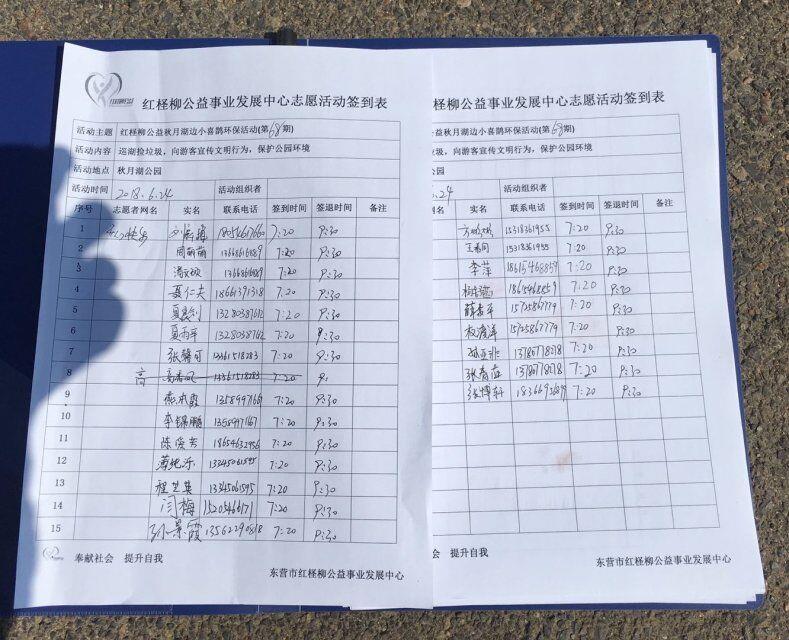 红柽柳公益事业发展中心志愿活动签到表
活动主题 红柽柳公益秋月湖边小喜鹊环保活动(第68期)
活动内容 巡湖捡垃圾，向游客宣传文明行为，保护公园环境
活动地点 秋月湖公园
活动时间 2018.6.24 活动组织者
序号 志愿者网名 实名 联系电话 签到时间 签退时间 备注
1 7:20 9:30
2 周萌萌 7:20 9:30
3 7:20 9:30
4 聂仁夫 18661391318 7:20 9:30
5 13280387612 7:20 9:30
6 夏雨平 7:20 9:30
7 张馨可 13361518283 7:20 9:30
8 高 13361518283 7:20 9:
9 7:20 9:30
10 李锦鹏 7:20 9:30
11 陈爱芳 18654632956 7:20 9:30
12 13345061595 7:20 9:30
13 程芝英 13345061595 7:20 9:30
14 闫梅 7:20 9:30
15 孙景霞 13562290818 7:20 9:30
奉献社会 提升自我
东营市红柽柳公益事业发展中心
益事业发展中心志愿活动签到表
益秋月湖边小喜鹊环保活动(第68期)
垃圾，向游客宣传文明行为，保护公园环境
公园
.24 活动组织者
实名 联系电话 签到时间 签退时间 备注
15318361955 7:20 9:30
15318361955 7:20 9:30
李萍 18615468859 7:20 9:30
18615468859 7:20 9:30
薛春平 15725867779 7:20 9:30
15725867779 7:20 9:30
13780778078 7:20 9:30
张春莲 13780778078 7:20 9:30
张博轩 7:20 9:30
奉献社会 提升自我
东营市红柽柳公益事业发展中心